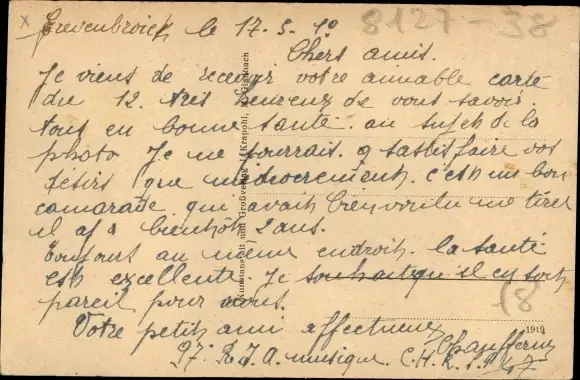 8127-38
Grevenbroich le 17.5.19
Chers amis.
Je viens de recevoir votre aimable carte
du 12. très heureux de vous savoir
tous en bonne santé. au sujet de la
photo Je ne pourrais. y satisfaire vos
désirs que médiocrement. c'est un bon
camarade qui avait bien voulu me tirer
il y a bientôt 2 ans.
Toujours au même endroit. la santé
est excellente. Je souhaite qu'il en soit
pareil pour vous.
Votre petit ami affectueux
97. R.I.A. musique.
18
1919
Kunstanstalt und Großverlag Krapohl, M.Gladbach